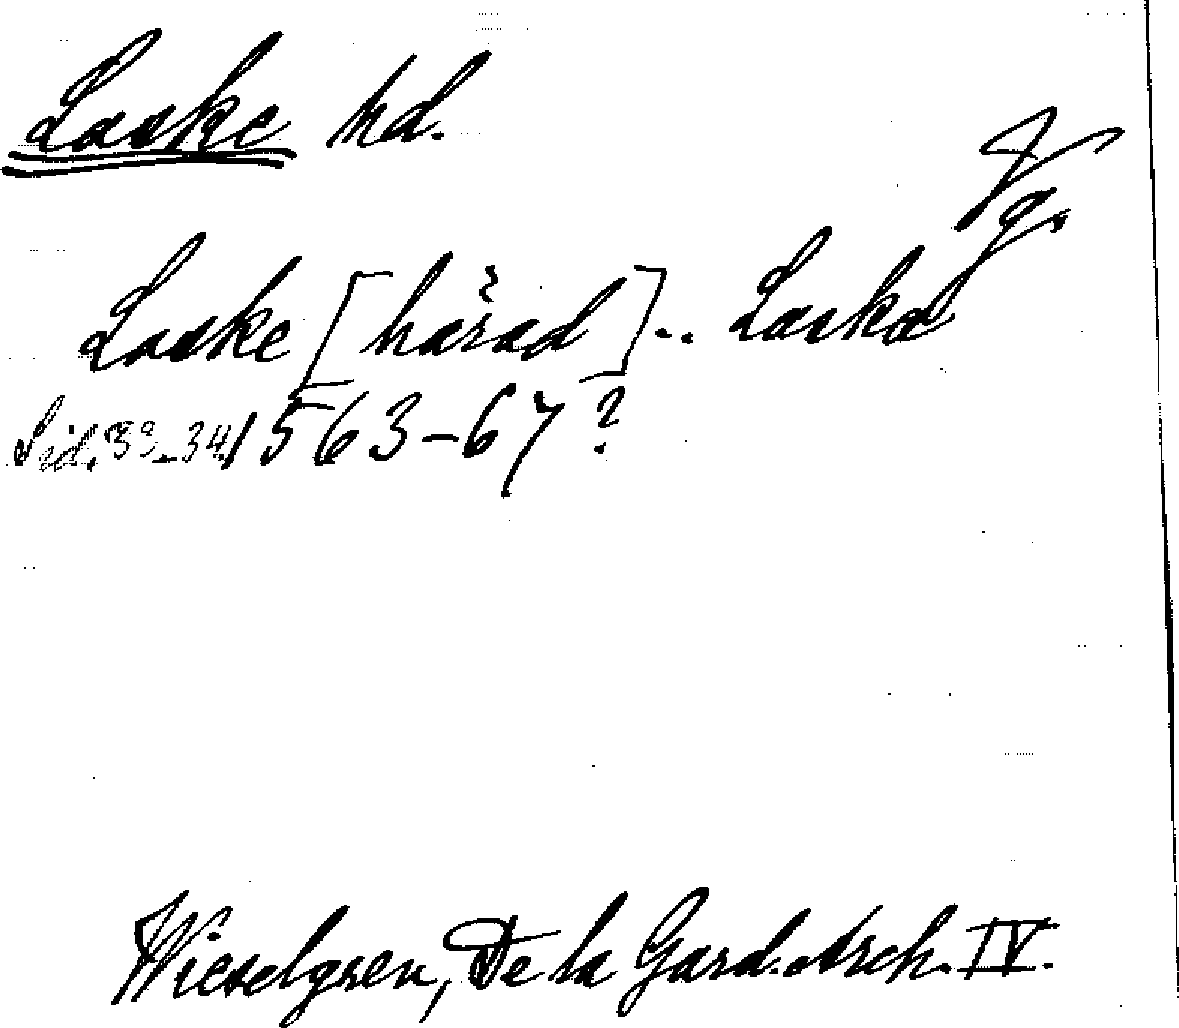 Laske hd.
Vg.
Laske [härad] .. Laska
Sid. 33-34. 1563-67?
Wieselgren, De la Gard. Arch. IV.